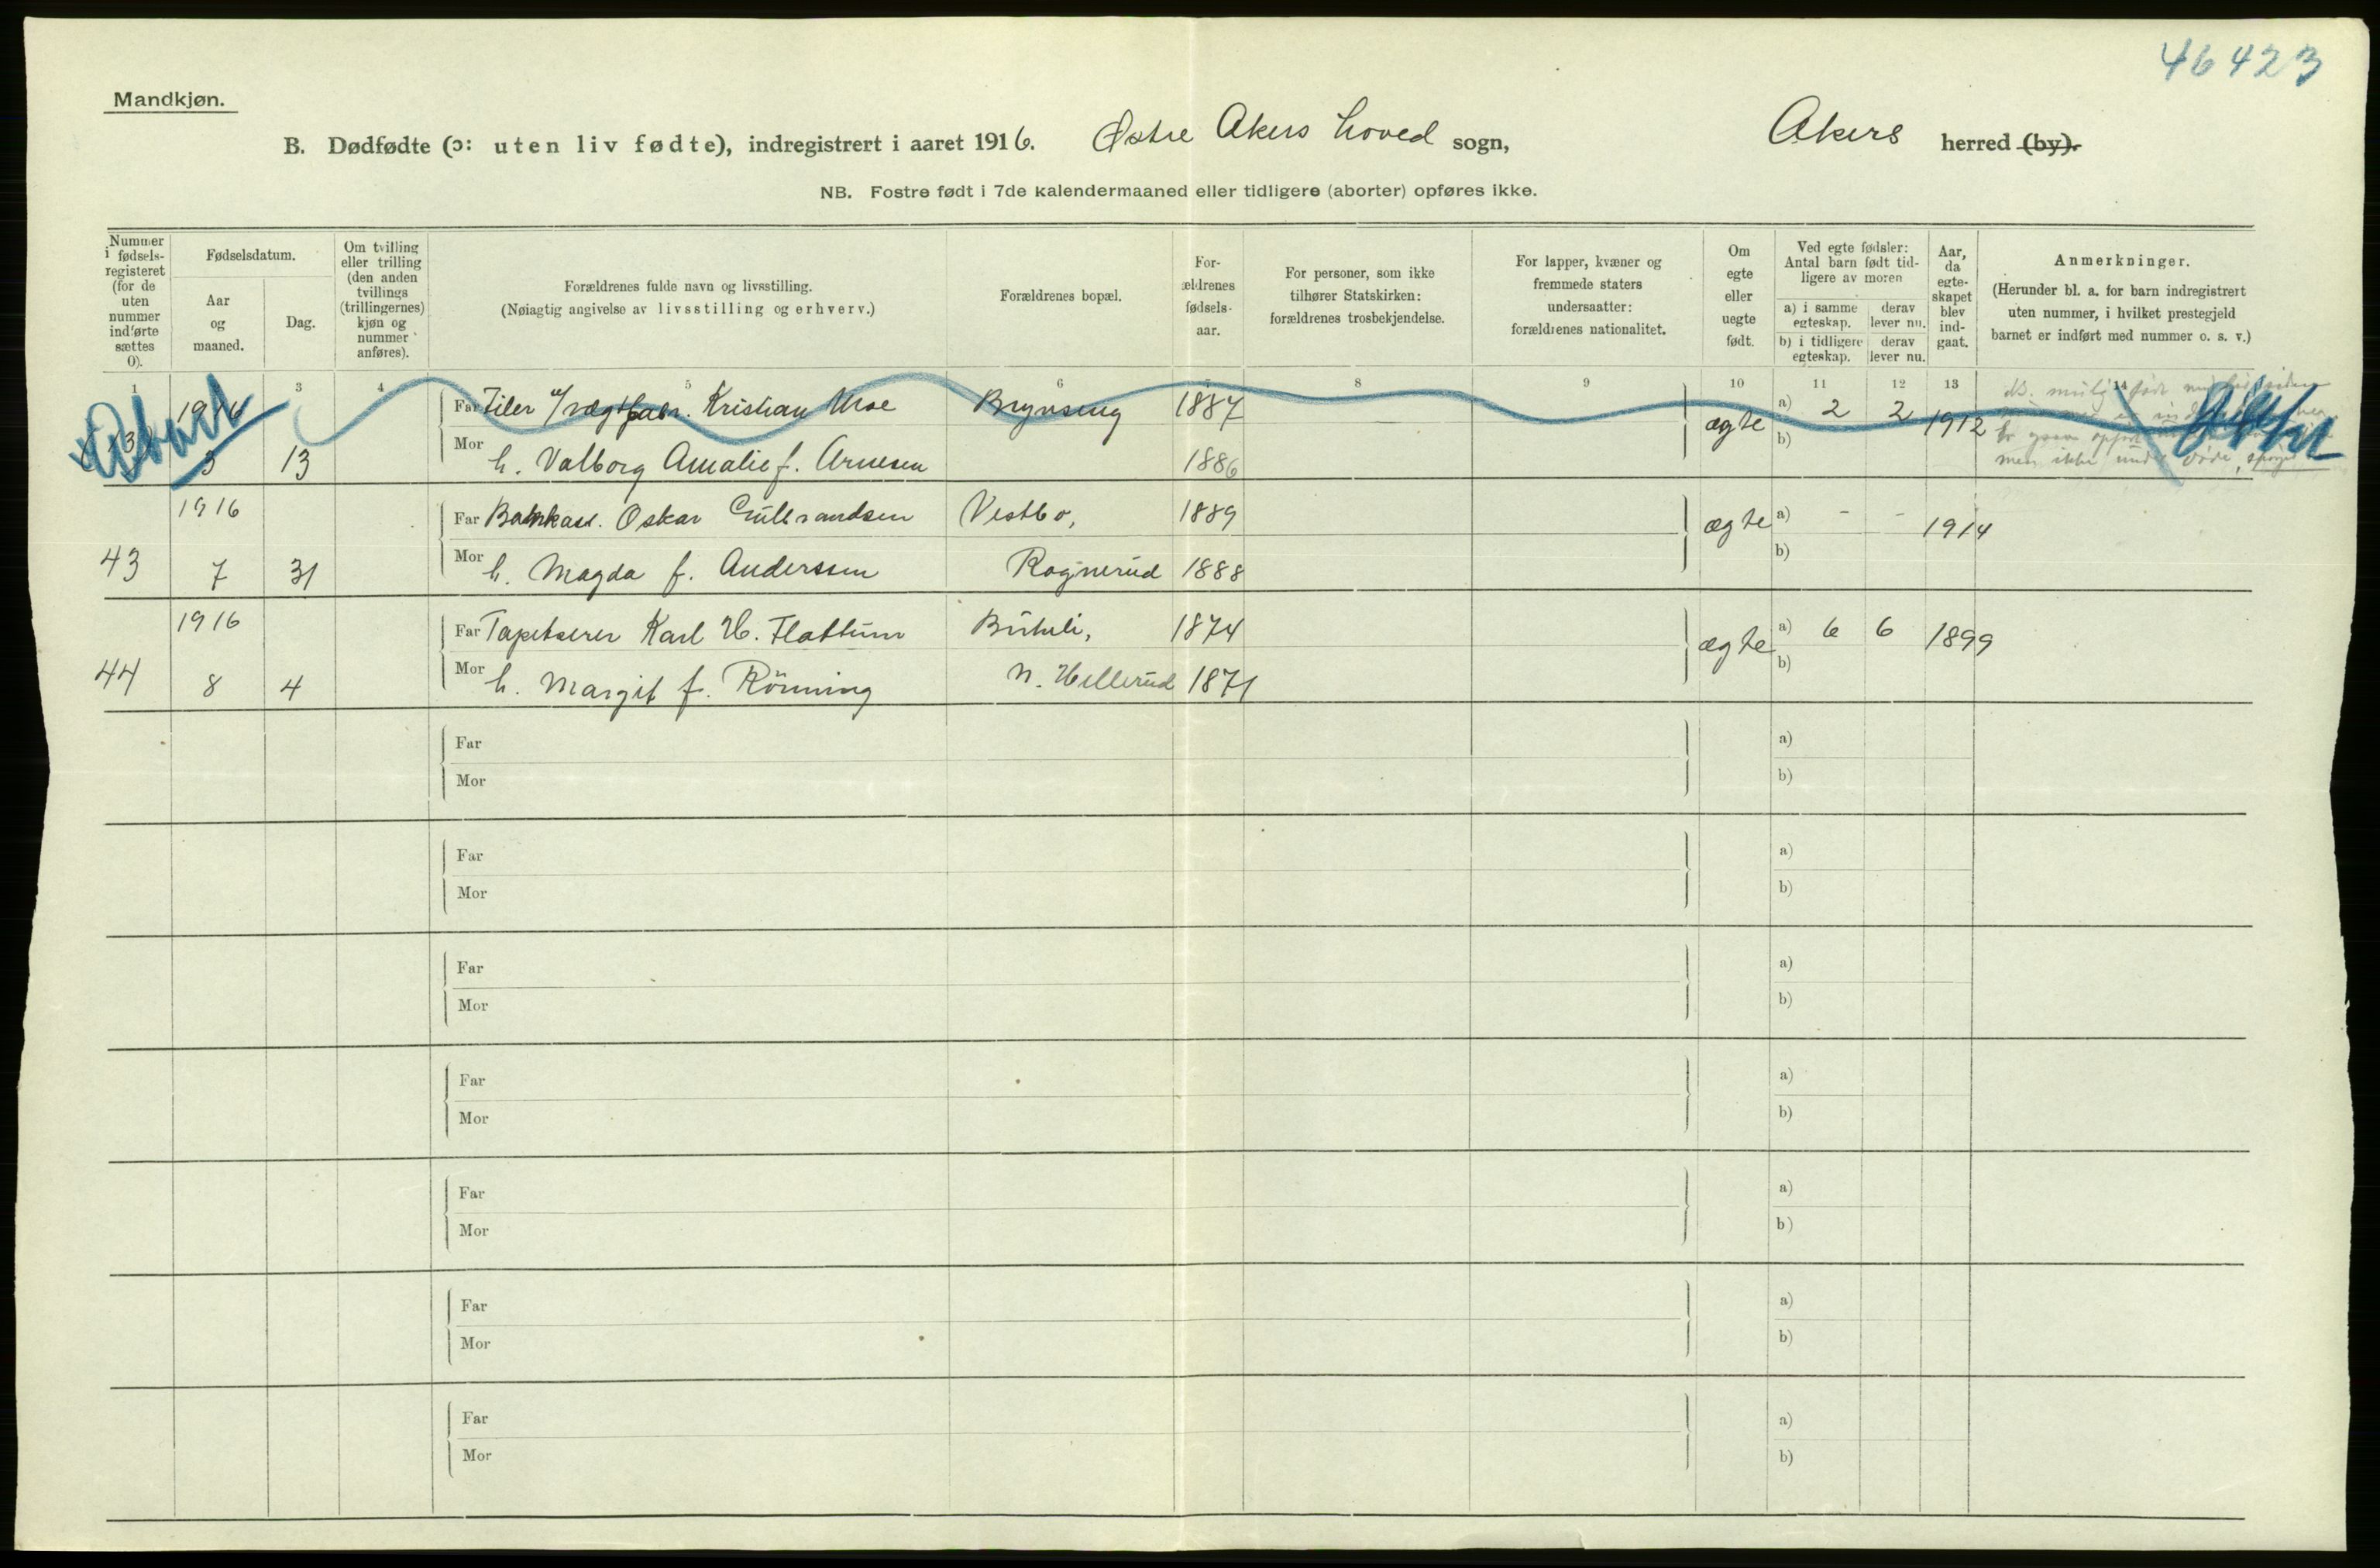 46423
Mandkjøn.
B. Dødfødte (ɔ: uten liv fødte), indregistrert i aaret 1916. Østre Akers hoved sogn, Akers herred (by).
NB. Fostre født i 7de kalendermaaned eller tidligere (aborter) opføres ikke.
Nummer i fødsels-registeret (for de uten nummer indførte sættes 0).
Fødselsdatum.
Aar og maaned.
Dag.
Om tvilling eller trilling (den anden tvillings (trillingernes) kjøn og nummer anføres).
Forældrenes fulde navn og livsstilling.
(Nøiagtig angivelse av livsstilling og erhverv.)
Forældrenes bopæl.
For-ældrenes fødsels-aar.
For personer, som ikke tilhører Statskirken: forældrenes trosbekjendelse.
For lapper, kvæner og fremmede staters undersaatter: forældrenes nationalitet.
Om egte eller uegte født.
Ved egte fødsler: Antal barn født tid-ligere av moren
a) i samme egteskap. derav lever nu.
b) i tidligere egteskap. derav lever nu.
Aar, da egte-skapet blev ind-gaat.
Anmerkninger.
(Herunder bl. a. for barn indregistrert uten nummer, i hvilket prestegjeld barnet er indført med nummer o. s. v.)
1 3 4 5 6 7 8 9 10 11 12 13 14
Abort
1916 Far Filer Kristian Moe Brynseng 1887 ægte a) 2 2 1912
3 13 Mor h. Valborg Amalie f. Arnesen 1886 b)
men ikke under døde, spørges
1916 Far Oskar Gulbrandsen Vestbo, 1889 ægte a) - - 1914
43 7 31 Mor h. Magda f. Anderssen Rognerud 1888 b)
1916 Far Tapetserer Karl H. Flattum 1874 ægte a) 6 6 1899
44 8 4 Mor h. Margit f. Rönning N. Hellerud 1871 b)
Far a)
Mor b)
Far a)
Mor b)
Far a)
Mor b)
Far a)
Mor b)
Far a)
Mor b)
Far a)
Mor b)
Far a)
Mor b)